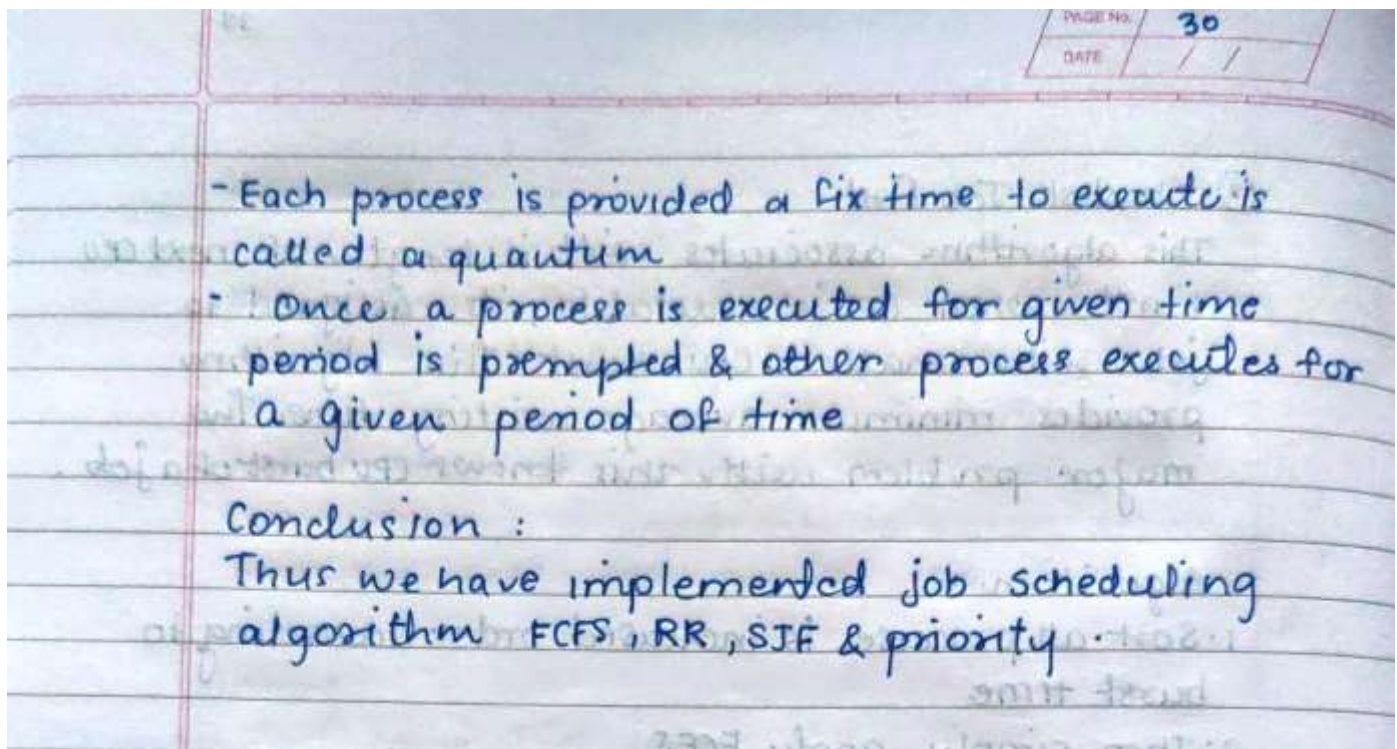 PAGE No. 30
DATE / /
- Each process is provided a fix time to execute is
called a quantum
- Once a process is executed for given time
period is prempted & other process executes for
a given period of time
Conclusion :
Thus we have implemented job scheduling
algorithm FCFS, RR, SJF & priority.